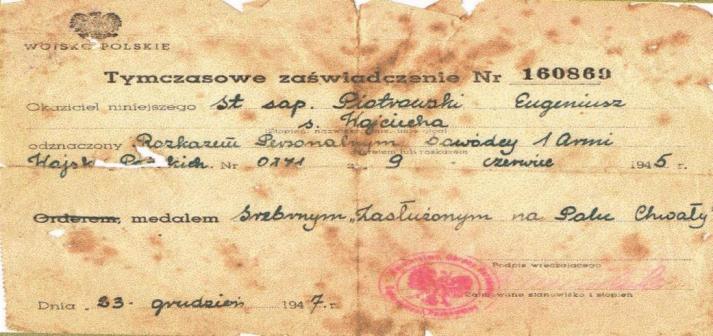 WOJSKO POLSKIE
Tymczasowe zaświadczenie Nr 160869
Okaziciel niniejszego st sap. Piotrowski Eugeniusz
s. Wojciecha
(Stopień, nazwisko, imię, imię ojca)
odznaczony Rozkazem Personalnym Dowódcy 1 Armi
Wojsk Polskich. Nr 0171 z 9 czerwiec 1945 r.
Orderem, medalem srebrnym „Zasłużonym na Polu Chwały"
Podpis wręczającego
Dnia 23 grudzień 1947. r.
Zajmowane stanowisko i stopień